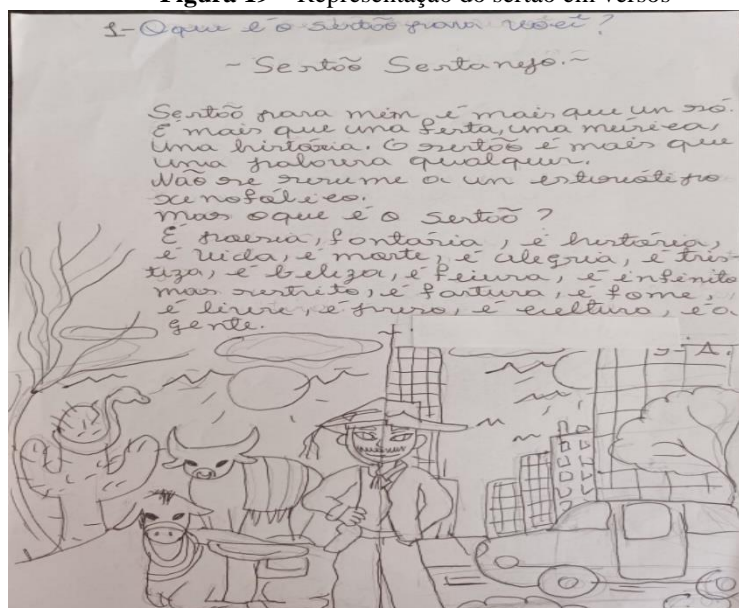 Figura 19 - Representação do sertão em versos
1-Oque é o sertão para você?
~ Sertão Sertanejo. ~
Sertão para mim é mais que un só.
É mais que uma festa, uma música,
uma história. O sertão é mais que
uma palavra qualquer.
Não se resume a un esteriótipo
xenofálico.
Mas oque é o sertão?
É poesia, fantasia, é história,
é vida, é morte, é alegria, é tris-
tiza, é beleza, é feiura, é infinito
mas restrito, é fartura, é fome,
é livre, é preso, é cultura, é a
gente.